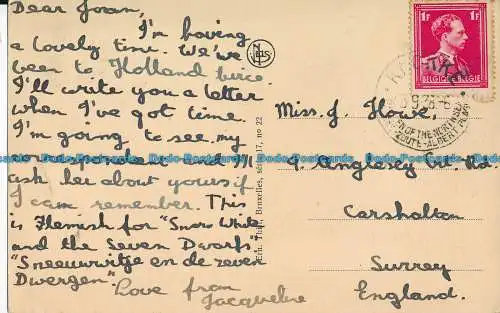 Dear Joan,
I'm having
a lovely time. We've
been to Holland twice
I'll write you a letter
when I've got time.
I'm going to see my
correspondent and I'll
ask her about yours if
I can remember. This
is Flemish for "Snow White
and the Seven Dwarfs".
"Sneeuwwitje en de zeven
Dwergen."
Love from
Jacqueline
NELS
Ern. Thill, Bruxelles, série 17, no 22
1F 1F
BELGIE-BELGIQUE
Miss J. Howe,
9 Anglesey Rd.
Carshalton
Surrey
England.